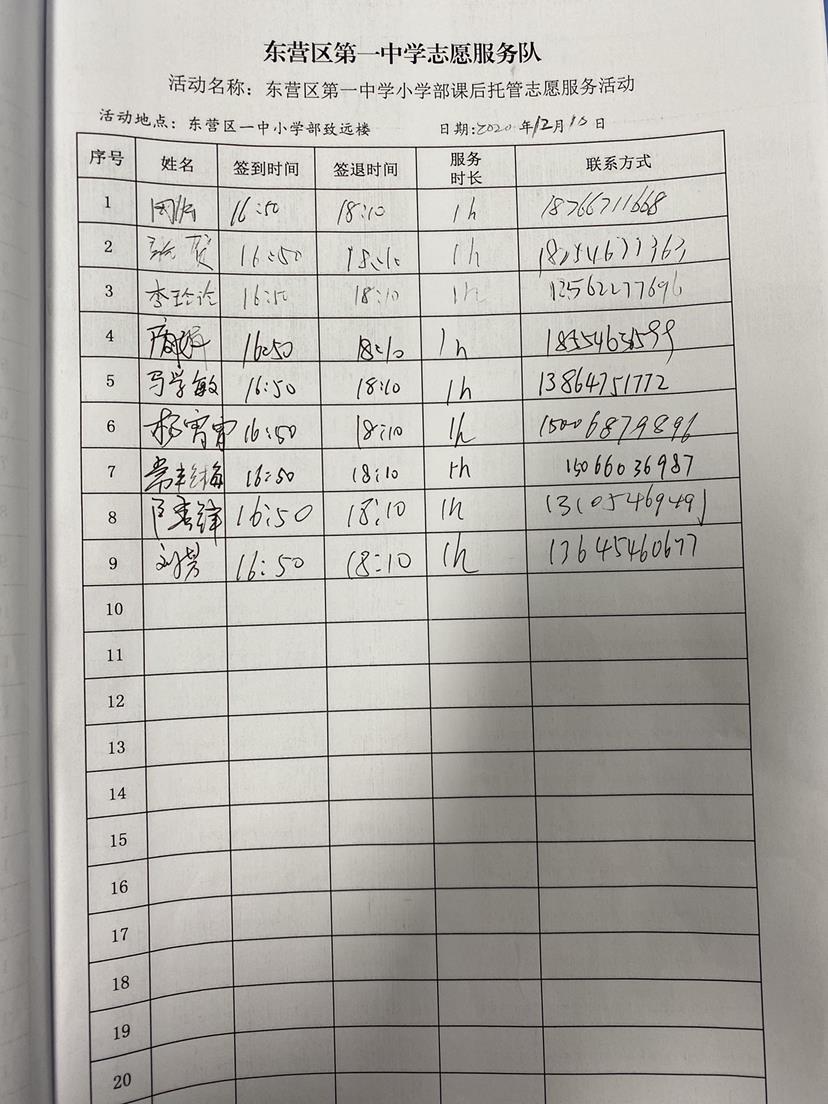 东营区第一中学志愿服务队
活动名称：东营区第一中学小学部课后托管志愿服务活动
活动地点：东营区一中小学部致远楼 日期:2020年12月10日
序号 姓名 签到时间 签退时间 服务时长 联系方式
1 16:50 18:10 1h 18766711668
2 张贺 16:50 18:10 1h
3 16:50 18:10 1h
4 16:50 18:10 1h
5 马学敏 16:50 18:10 1h 13864751772
6 杨宵宵 16:50 18:10 1h 15006879896
7 16:50 18:10 1h 15066036987
8 16:50 18:10 1h 13105469491
9 16:50 18:10 1h 13645460677
10
11
12
13
14
15
16
17
18
19
20